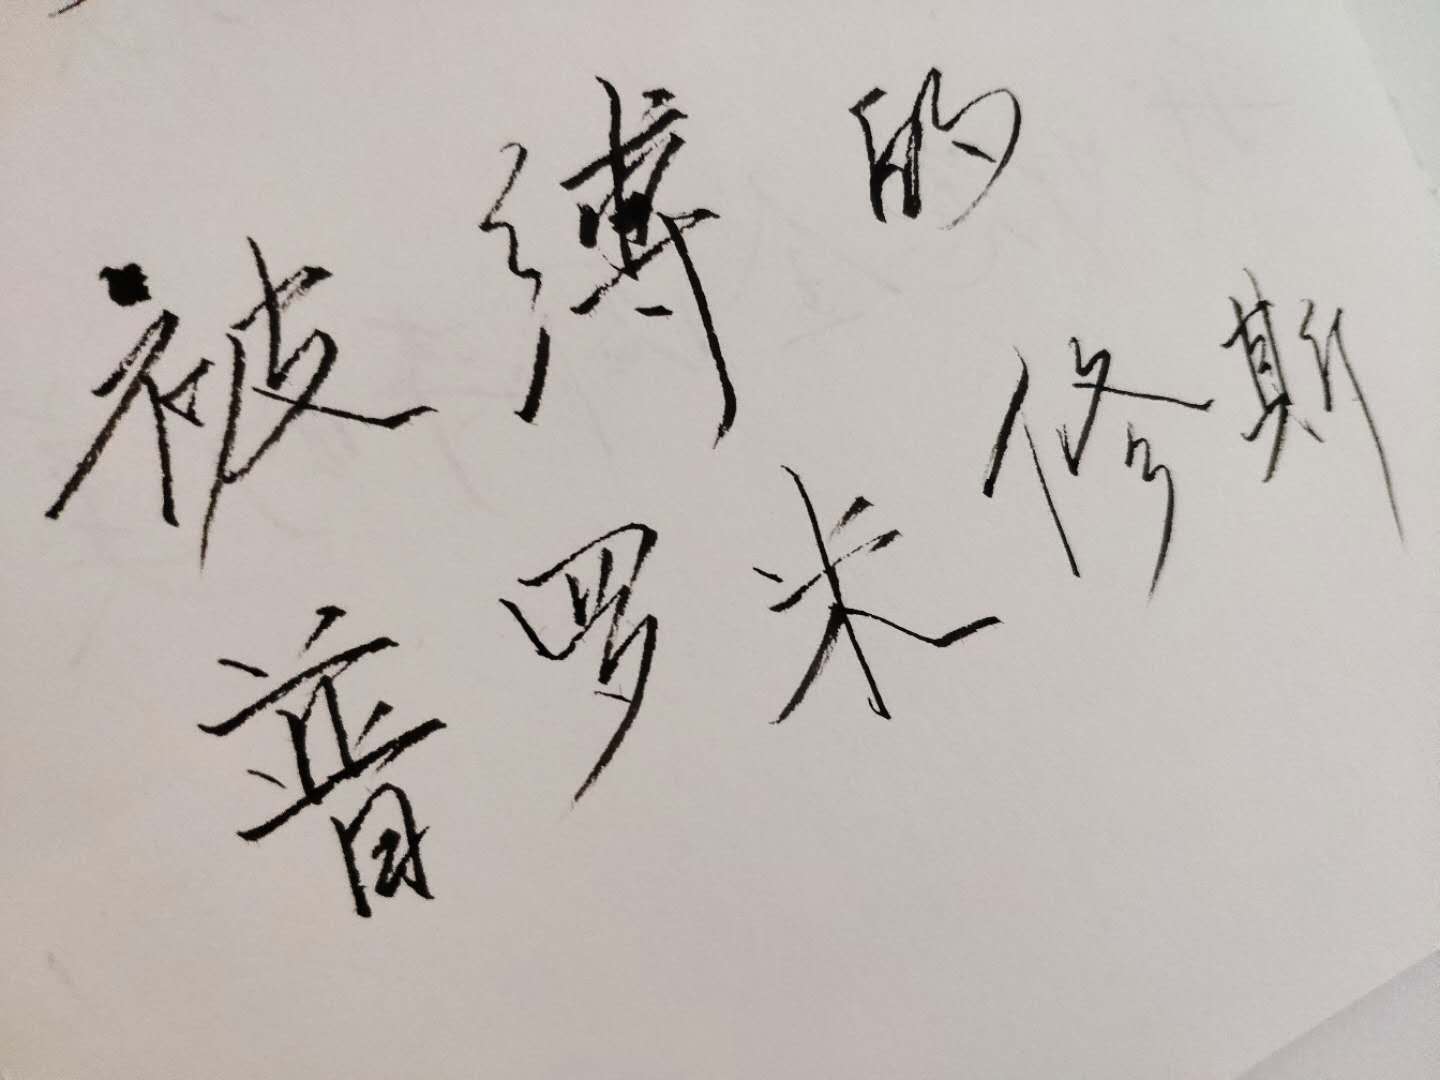 被缚的
普罗米修斯